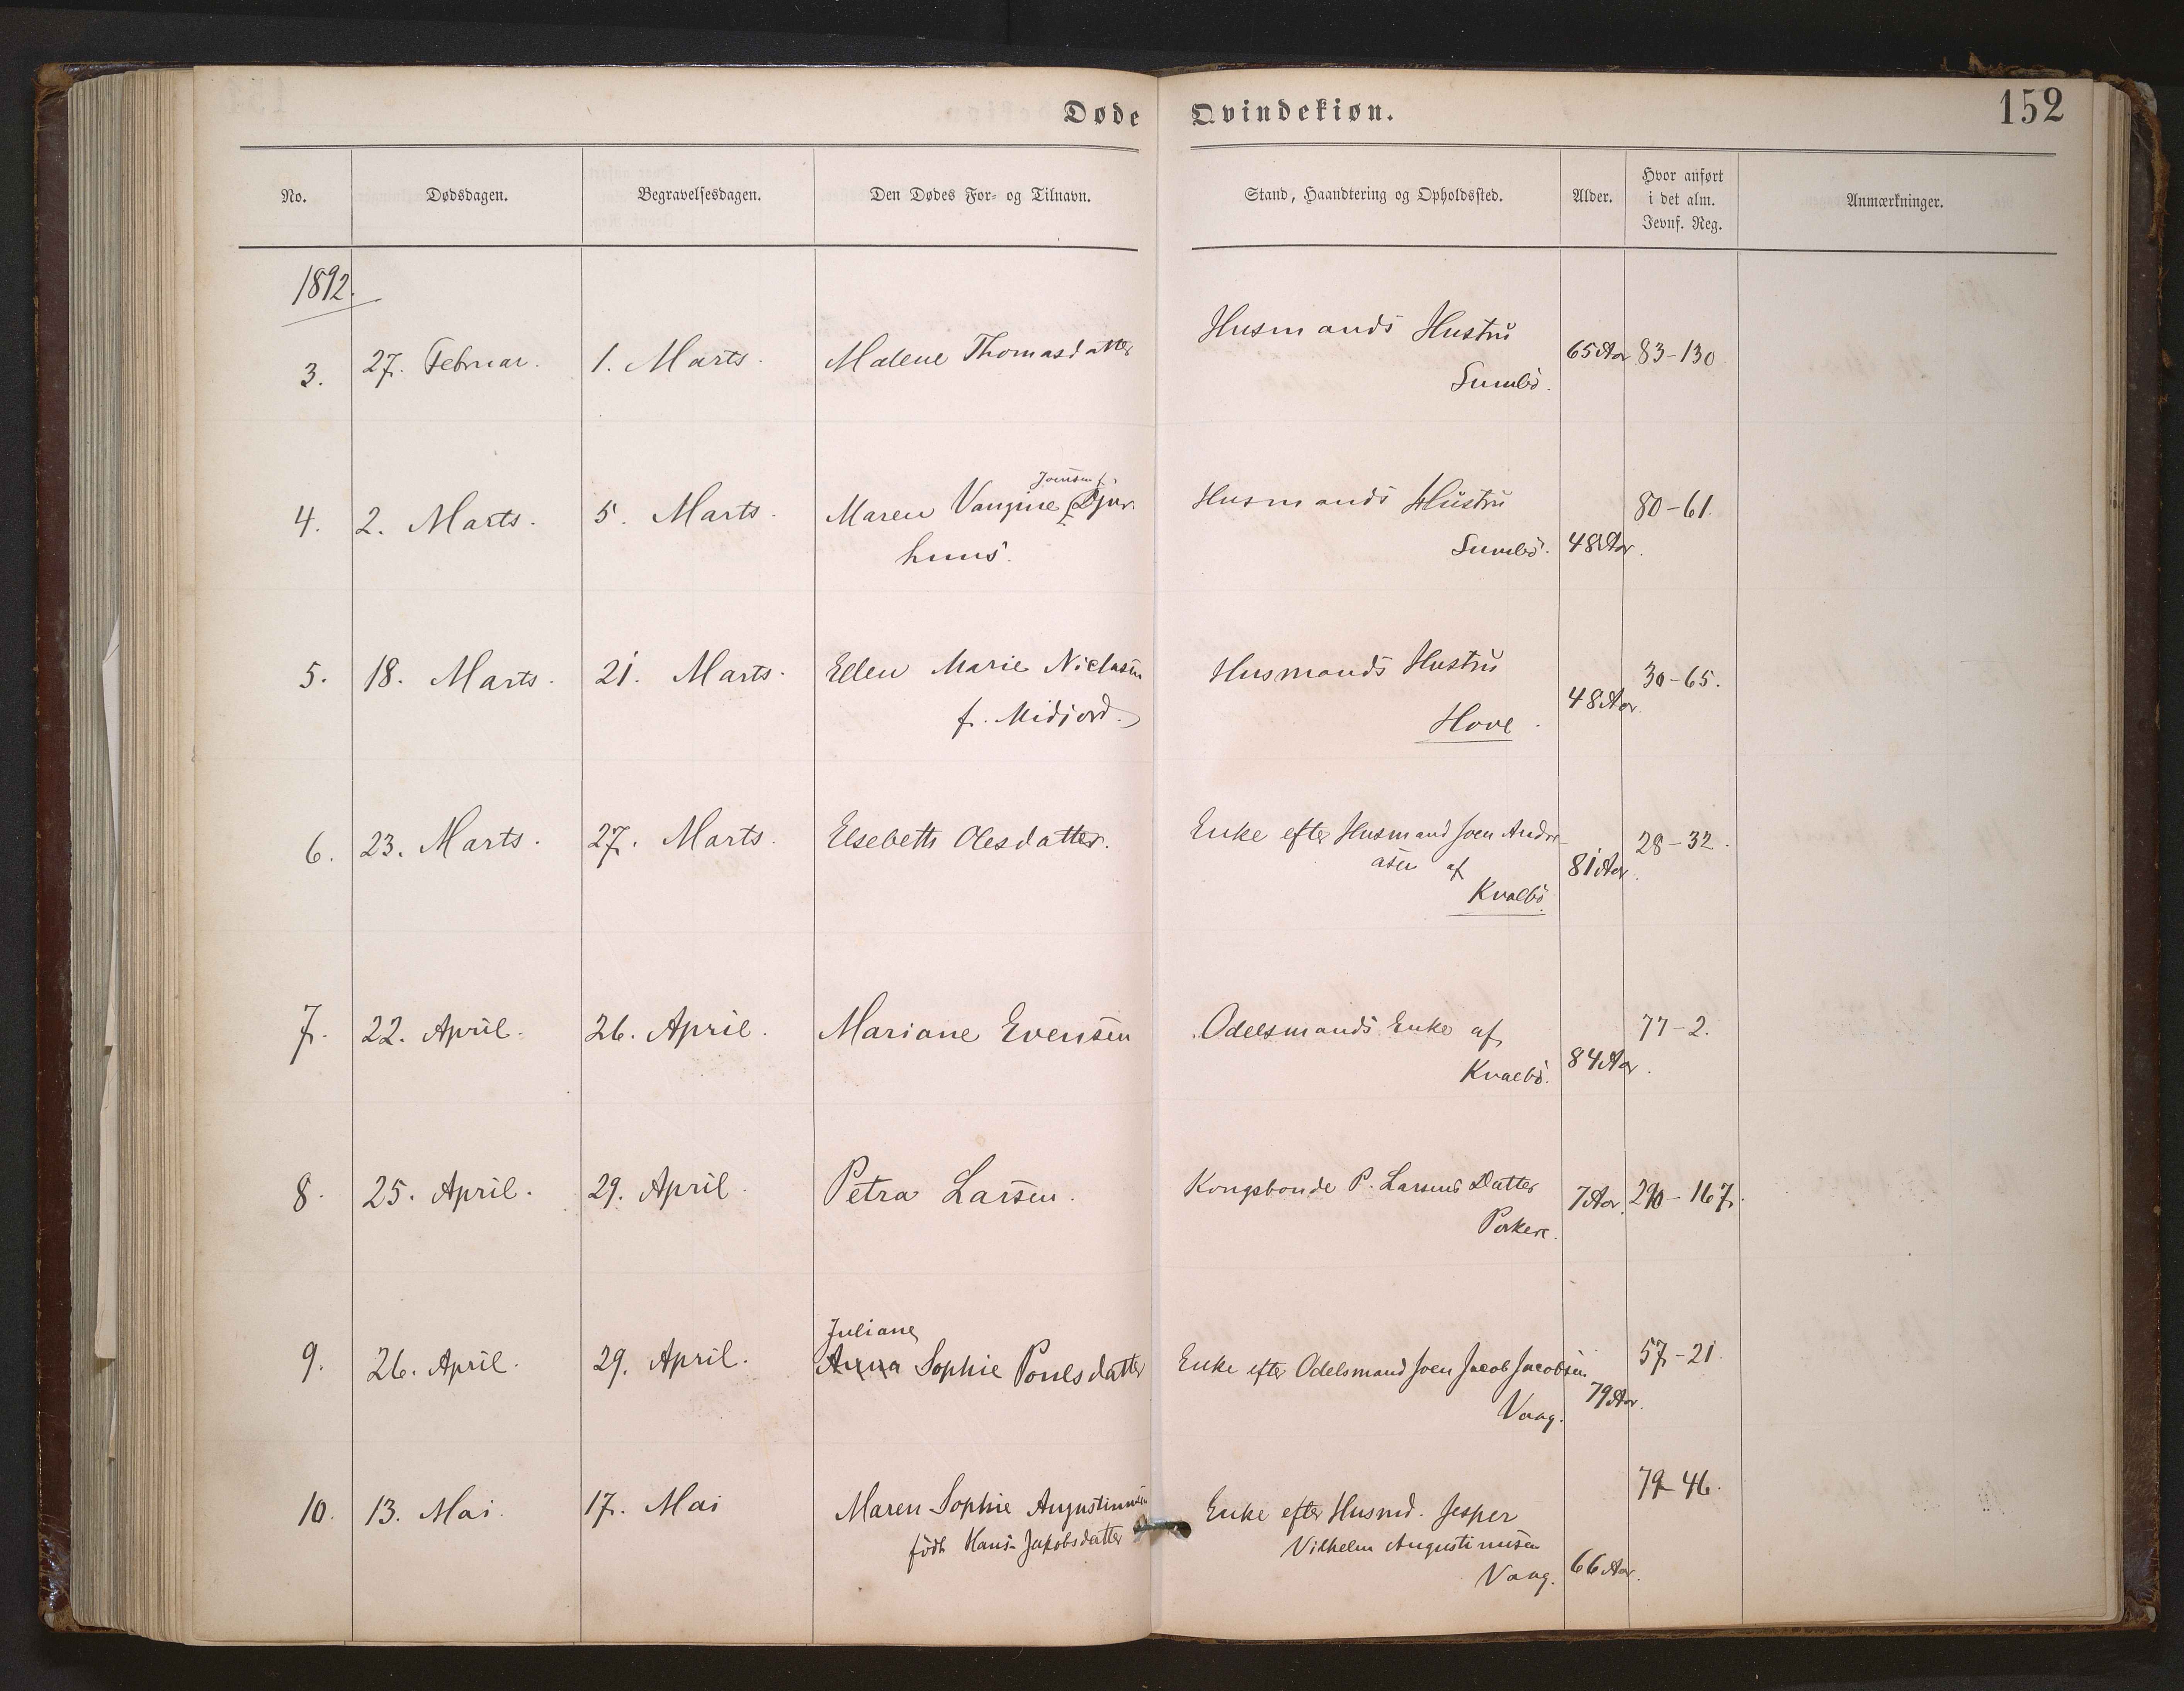 Døde Qvindekiøn.
152
No. Dødsdagen. Begravelsesdagen. Den Dødes For- og Tilnavn. Stand, Haandtering og Opholdssted. Alder. Hvor anført i det alm. Jevnf. Reg. Anmærkninger.
1892.
3. 27. Februar. 1. Marts. Malene Thomasdatter Husmands Hustru 65 Aar 83-130
Sumbö.
Joensen f.
4. 2. Marts. 5. Marts. Maren Vangine Djur- Husmands Hustru 80-61.
huus. Sumbö. 48 Aar.
5. 18. Marts. 21. Marts. Ellen Marie Niclasen Husmands Hustru 30-65.
f. Midjord. Hove. 48 Aar.
6. 23. Marts. 27. Marts. Elsebeth Olesdatter. Enke efter Husmand Joen Andre- 28-32.
asen af 81 Aar.
Kvalbö.
7. 22. April. 26. April. Mariane Evensen Odelsmands Enke af 77-2.
Kvalbö. 84 Aar.
8. 25. April. 29. April. Petra Larsen. Kongsbonde P. Larsens Datter 7 Aar. 290-167.
Porkere.
Juliane
9. 26. April. 29. April. Anna Sophie Poulsdatter Enke efter Odelsmand Joen Jacob Jacobsen 57-21.
Vaag. 79 Aar.
10. 13. Mai. 17. Mai Maren Sophie Augustinusen Enke efter Husmd. Jesper 79-46.
födt Hans-Jakobsdatter Vilhelm Augustinusen
Vaag. 66 Aar.